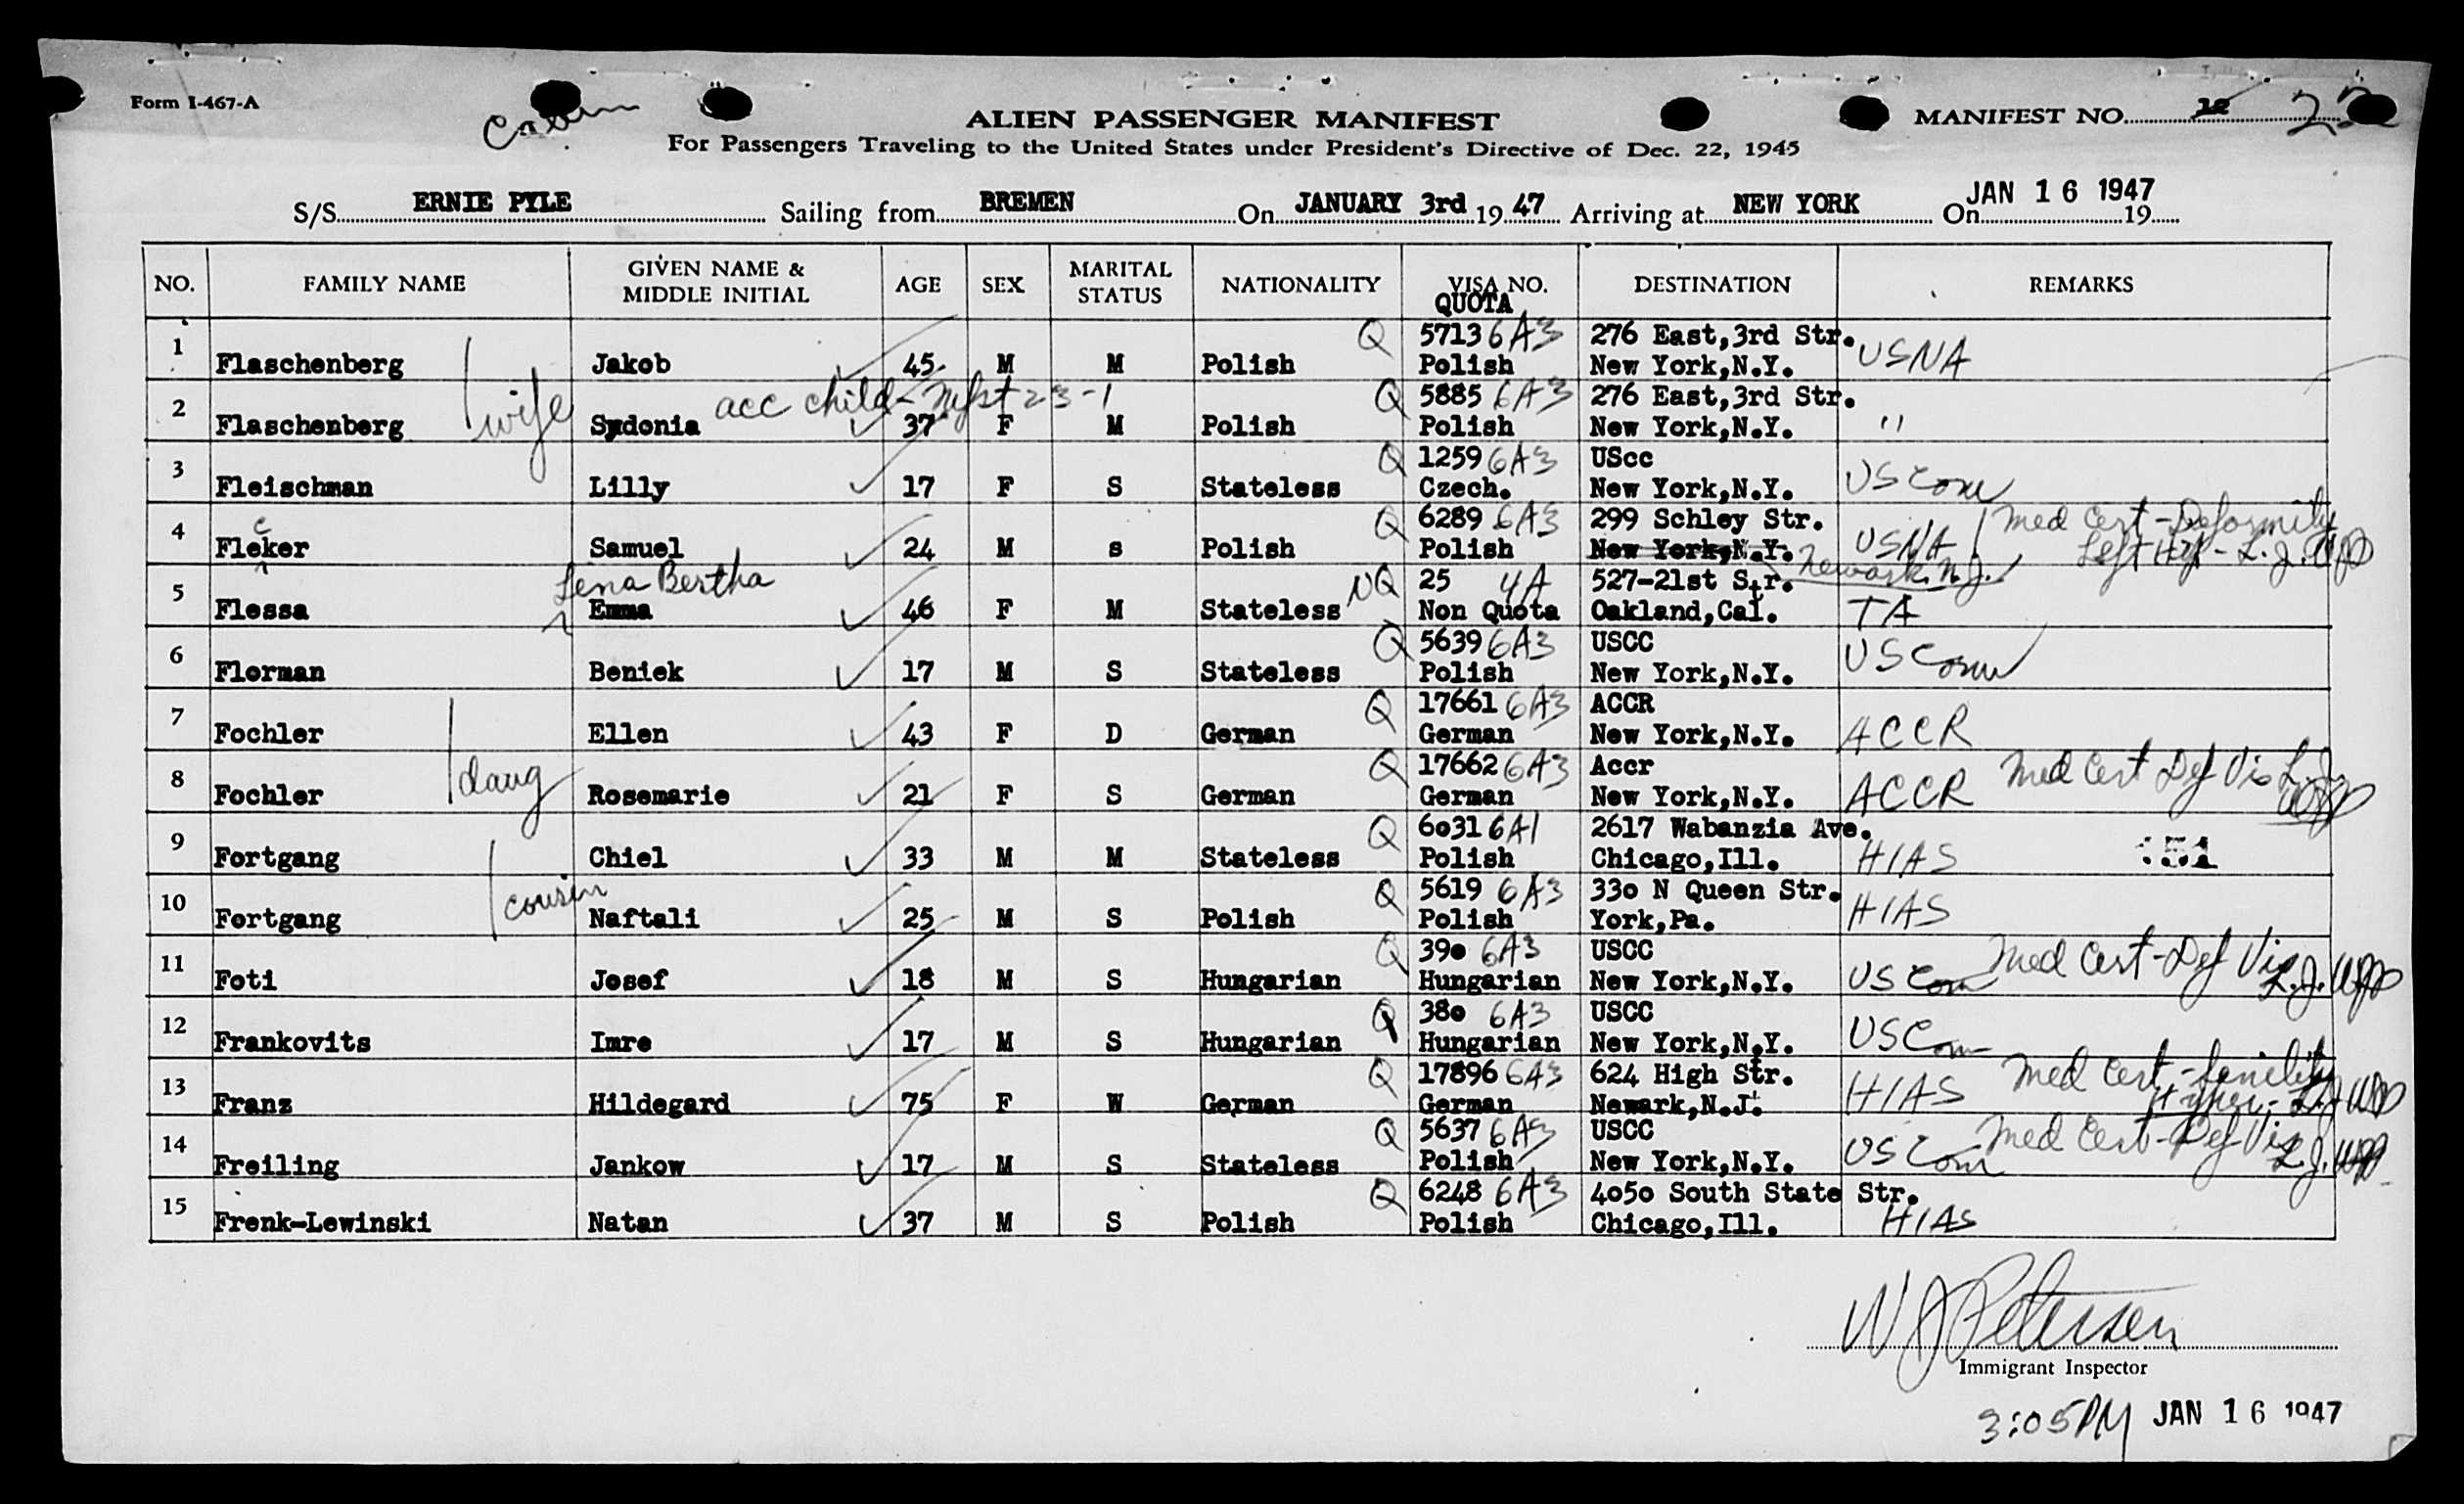 Form I-467-A
Cabin
ALIEN PASSENGER MANIFEST
MANIFEST NO. 12 22
For Passengers Traveling to the United States under President's Directive of Dec. 22, 1945
S/S ERNIE PYLE Sailing from BREMEN On JANUARY 3rd 19 47 Arriving at NEW YORK On JAN 16 1947 19
NO. FAMILY NAME GIVEN NAME & MIDDLE INITIAL AGE SEX MARITAL STATUS NATIONALITY VISA NO. QUOTA DESTINATION REMARKS
1 Flaschenberg Jakob 45 M M Polish Q 5713 6A3 Polish 276 East,3rd Str. New York,N.Y. USNA
2 Flaschenberg wife Sydonia acc child - Mfst 23-1 37 F M Polish Q 5885 6A3 Polish 276 East,3rd Str. New York,N.Y. "
3 Fleischman Lilly 17 F S Stateless Q 1259 6A3 Czech. UScc New York,N.Y. US Com
4 Fleker c Samuel 24 M s Polish Q 6289 6A3 Polish 299 Schley Str. New York,N.Y. Newark N.J. USNA Med Cert - Deformity Left Hip - L.J.
5 Flessa Lena Bertha Emma 46 F M Stateless NQ 25 4A Non Quota 527-21st Str. Oakland,Cal. TA
6 Florman Beniek 17 M S Stateless Q 5639 6A3 Polish USCC New York,N.Y. US Com
7 Fochler Ellen 43 F D German Q 17661 6A3 German ACCR New York,N.Y. ACCR
8 Fochler daug Rosemarie 21 F S German Q 17662 6A3 German Accr New York,N.Y. ACCR Med Cert Def Vis L.J.
9 Fortgang Chiel 33 M M Stateless Q 6031 6A1 Polish 2617 Wabanzia Ave. Chicago,Ill. HIAS 151
10 Fortgang cousin Naftali 25 M S Polish Q 5619 6A3 Polish 330 N Queen Str. York,Pa. HIAS
11 Foti Josef 18 M S Hungarian Q 390 6A3 Hungarian USCC New York,N.Y. US Com Med Cert - Def Vis L.J.
12 Frankovits Imre 17 M S Hungarian Q 380 6A3 Hungarian USCC New York,N.Y. US Com
13 Franz Hildegard 75 F W German Q 17896 6A3 German 624 High Str. Newark,N.J. HIAS Med Cert - Senility
14 Freiling Jankow 17 M S Stateless Q 5637 6A3 Polish USCC New York,N.Y. US Com Med Cert - Def Vis L.J.
15 Frenk-Lewinski Natan 37 M S Polish Q 6248 6A3 Polish 4050 South State Str. Chicago,Ill. HIAS
W J Petersen
Immigrant Inspector
3:05 PM JAN 16 1947